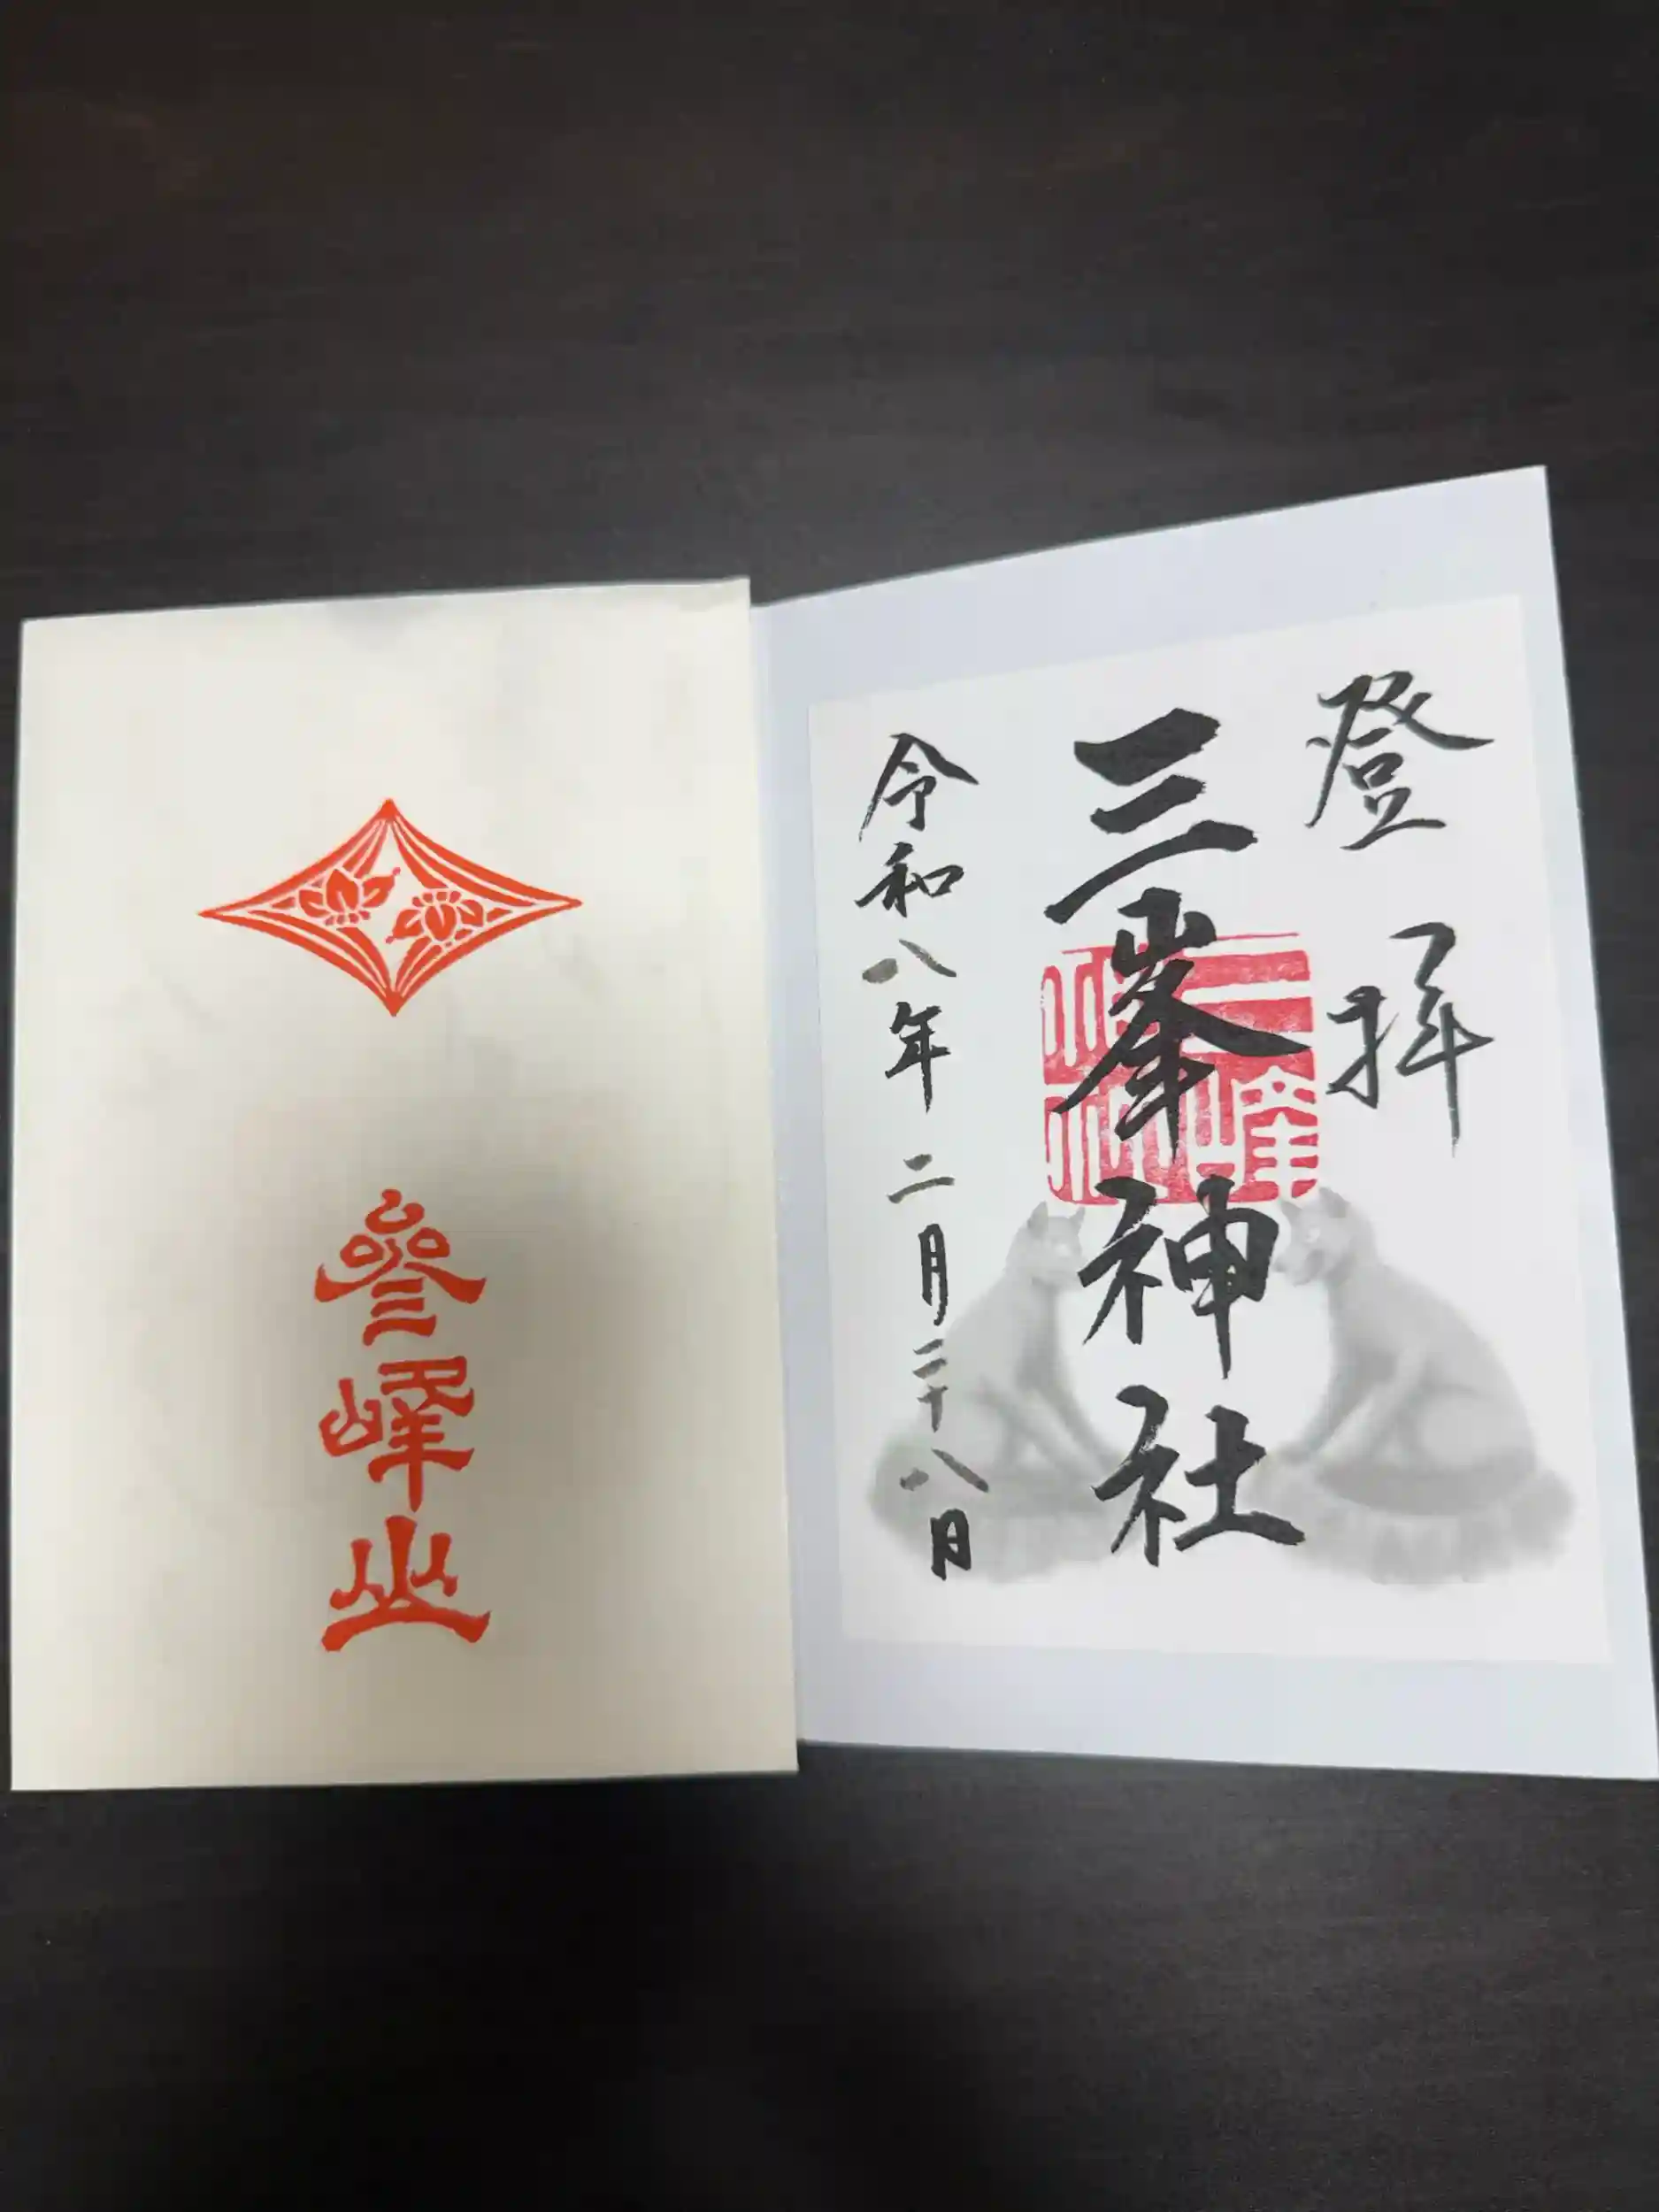 參峰山
登拝
三峯神社
三峰神社
令和八年二月二十八日